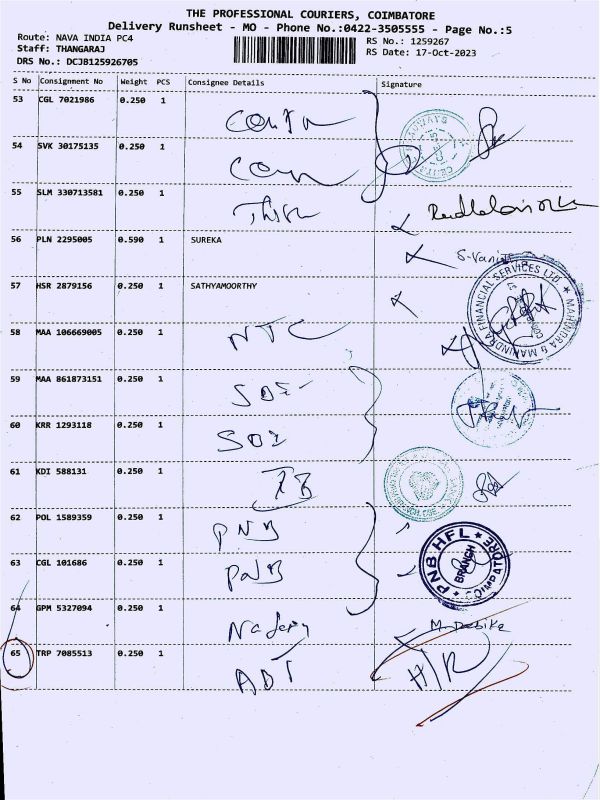 THE PROFESSIONAL COURIERS, COIMBATORE
Delivery Runsheet - MO - Phone No.:0422-3505555 - Page No.:5
Route: NAVA INDIA PC4
RS No.: 1259267
Staff: THANGARAJ
RS Date: 17-Oct-2023
DRS No.: DCJB125926705
S No Consignment No Weight PCS Consignee Details Signature
53 CGL 7021986 0.250 1
54 SVK 30175135 0.250 1
55 SLM 330713581 0.250 1
56 PLN 2295005 0.590 1 SUREKA
57 HSR 2879156 0.250 1 SATHYAMOORTHY
MAHINDRA & MAHINDRA FINANCIAL SERVICES LTD
58 MAA 106669005 0.250 1 NTC
59 MAA 861873151 0.250 1
60 KRR 1293118 0.250 1
61 KDI 588131 0.250 1
62 POL 1589359 0.250 1 PNB
63 CGL 101686 0.250 1 PNB
PNB HFL BRANCH COIMBATORE
64 GPM 5327094 0.250 1
M. Debika
65 TRP 7085513 0.250 1 ABT H/R